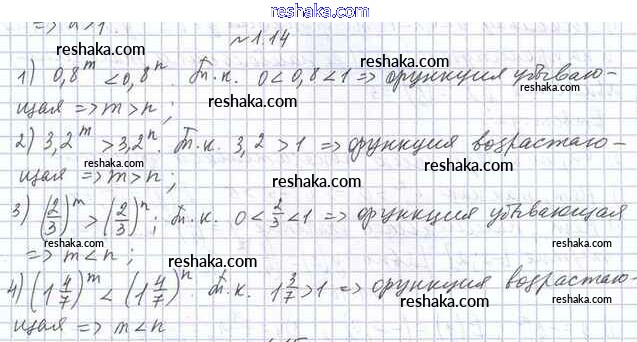 reshaka.com
=> n > 1.
reshaka.com
№ 1.14
reshaka.com reshaka.com
1) 0,8^m < 0,8^n. т.к. 0 < 0,8 < 1 => функция убываю-
щая => m > n ;
reshaka.com
2) 3,2^m > 3,2^n. т.к. 3,2 > 1 => функция возрастаю-
reshaka.com reshaka.com
щая => m > n ;
reshaka.com
3) (2/3)^m > (2/3)^n ; т.к. 0 < 2/3 < 1 => функция убывающая
reshaka.com
=> m < n ;
reshaka.com reshaka.com
4) (1 4/7)^m < (1 4/7)^n. т.к. 1 3/7 > 1 => функция возрастаю-
reshaka.com
щая => m < n
reshaka.com